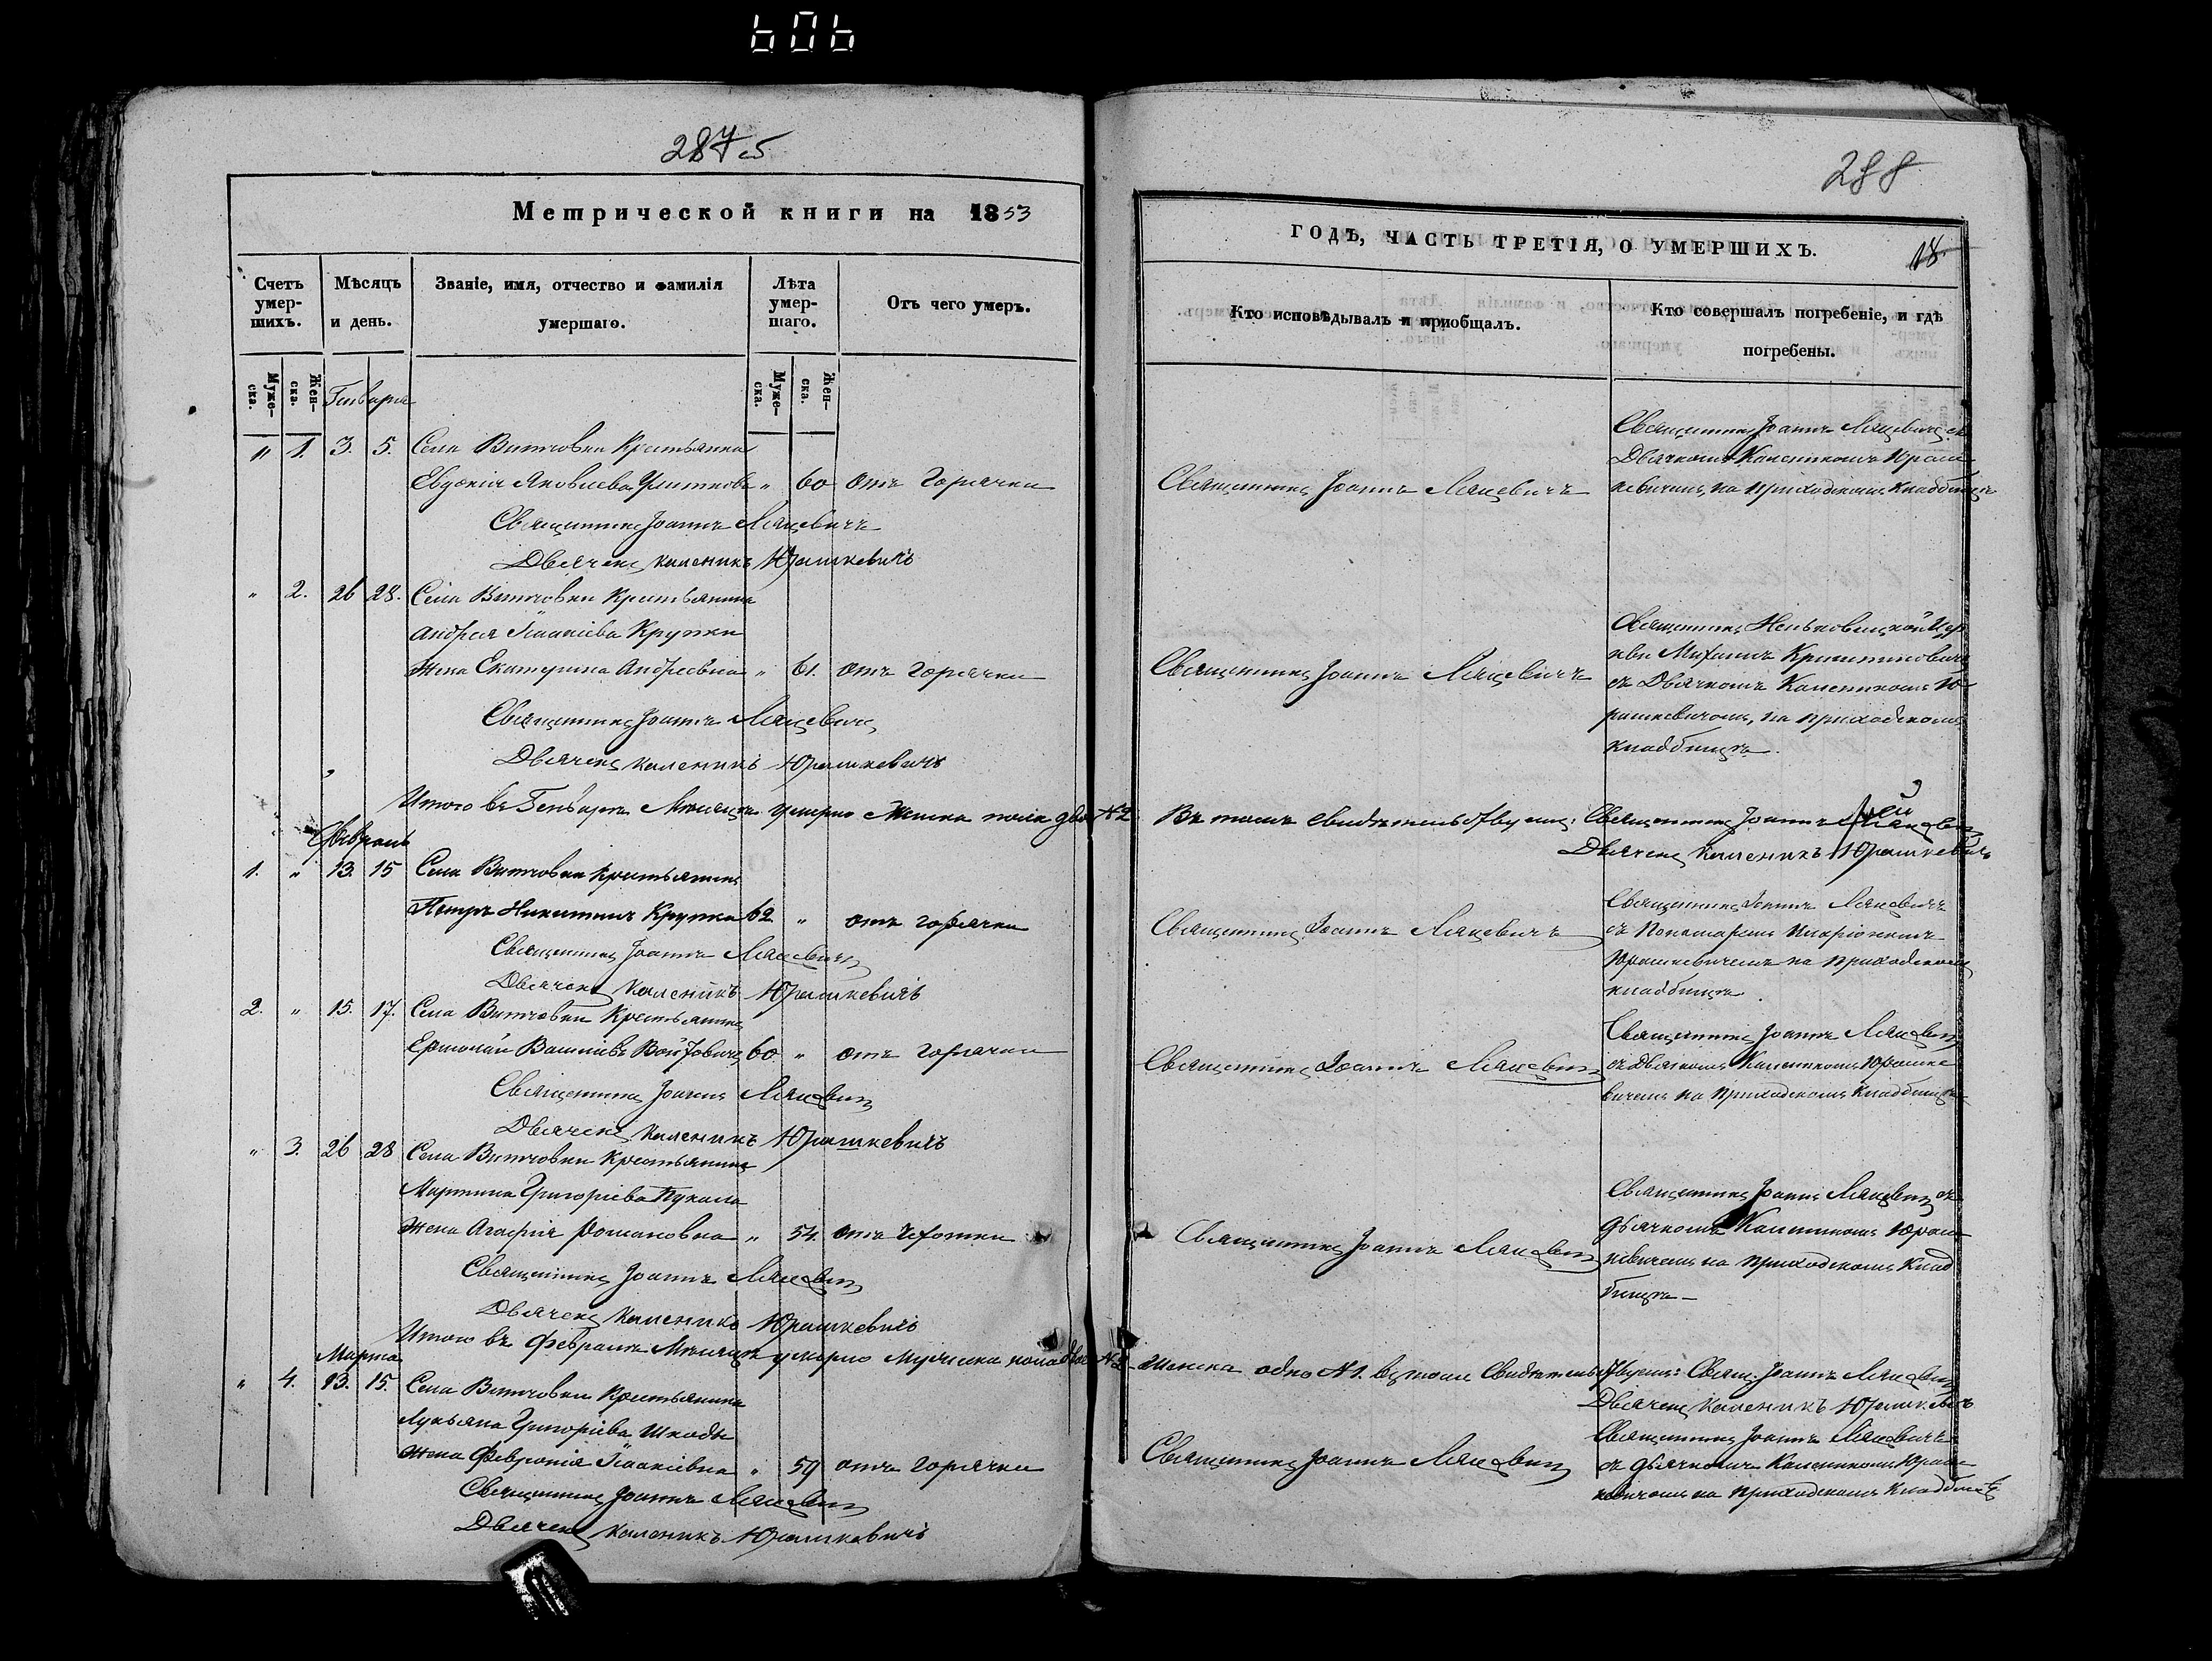 606
287 об
Метрической книги на 1853
Счетъ умер-шихъ.
Мѣсяцъ и день.
Званіе, имя, отчество и фамилія умершаго.
Лѣта умер-шаго.
Отъ чего умеръ.
Муже-ска.
Жен-ска.
Муже-ска.
Жен-ска.
Генваря
" 1. 3. 5. Села Витчовки Крестьянка
Евдокія Яковлева " 60 отъ горячки
Священникъ Іоаннъ Ляцевичъ
Дьячекъ Каленикъ Юрашкевичъ
" 2. 26 28. Села Витчовки Крестьянина
Андрея Исаакіева Крупки
Жена Екатерина Андреевна " 61. отъ горячки
Священникъ Іоаннъ Ляцевичъ
Дьячекъ Каленикъ Юрашкевичъ
Итого въ Генварѣ Мѣсяцѣ умерло Женска пола два №2
Февраль
1. " 13. 15 Села Витчовки крестьянинъ
Петръ Никитинъ Крупка 62 " отъ горячки
Священникъ Іоаннъ Ляцевичъ
Дьячекъ Каленикъ Юрашкевичъ
2. " 15. 17. Села Витчовки Крестьянинъ
Ермолай Васильевъ Войтовичъ 60 " отъ горячки
Священникъ Іоаннъ Ляцевичъ
Дьячекъ Каленикъ Юрашкевичъ
" 3. 26 28 Села Витчовки Крестьянина
Мартина Григоріева Пукала
Жена Агафія Романовна " 54. отъ чахотки
Священникъ Іоаннъ Ляцевичъ
Дьячекъ Каленикъ Юрашкевичъ
Итого въ Февралѣ Мѣсяцѣ умерло Мужеска пола два №2
Марта
" 4. 13. 15. Села Витчовки Крестьянина
Лукьяна Григоріева Шкоды
Жена Февронія Исаакіевна " 59 отъ горячки
Священникъ Іоаннъ Ляцевичъ
Дьячекъ Каленикъ Юрашкевичъ
288
ГОДЪ, ЧАСТЬ ТРЕТІЯ, О УМЕРШИХЪ.
18.
Кто исповѣдывалъ и приобщалъ.
Кто совершалъ погребеніе, и гдѣ погребены.
Священникъ Іоаннъ Ляцевичъ
Священникъ Іоаннъ Ляцевичъ съ
Дьячкомъ Каленикомъ Юраш-
кевичемъ, на приходскомъ кладбищѣ
Священникъ Іоаннъ Ляцевичъ
Священникъ Цер-
кви Михаилъ
съ Дьячкомъ Каленикомъ Ю-
рашкевичемъ, на приходскомъ
кладбищѣ.
Въ томъ свидѣтельствуемъ: Священникъ Іоаннъ Ляцевичъ
Дьячекъ Каленикъ Юрашкевичъ
Священникъ Іоаннъ Ляцевичъ
Священникъ Іоаннъ Ляцевичъ
съ Пономаремъ Иларіономъ
Юрашкевичемъ на приходскомъ
кладбищѣ.
Священникъ Іоаннъ Ляцевичъ
Священникъ Іоаннъ Ляцевичъ
съ Дьячкомъ Каленикомъ Юрашке
вичемъ на приходскомъ кладбищѣ
Священникъ Іоаннъ Ляцевичъ
Священникъ Іоаннъ Ляцевичъ съ
дьячкомъ Каленикомъ Юраш-
кевичемъ на приходскомъ Клад
бищѣ –
Женска одно №1. въ томъ свидѣтельствуемъ: Свящ. Іоаннъ Ляцевичъ
Дьячекъ Каленикъ Юрашкевичъ
Священникъ Іоаннъ Ляцевичъ
Священникъ Іоаннъ Ляцевичъ
съ дьячкомъ Каленикомъ Юраш-
кевичемъ на приходскомъ Кладбищѣ